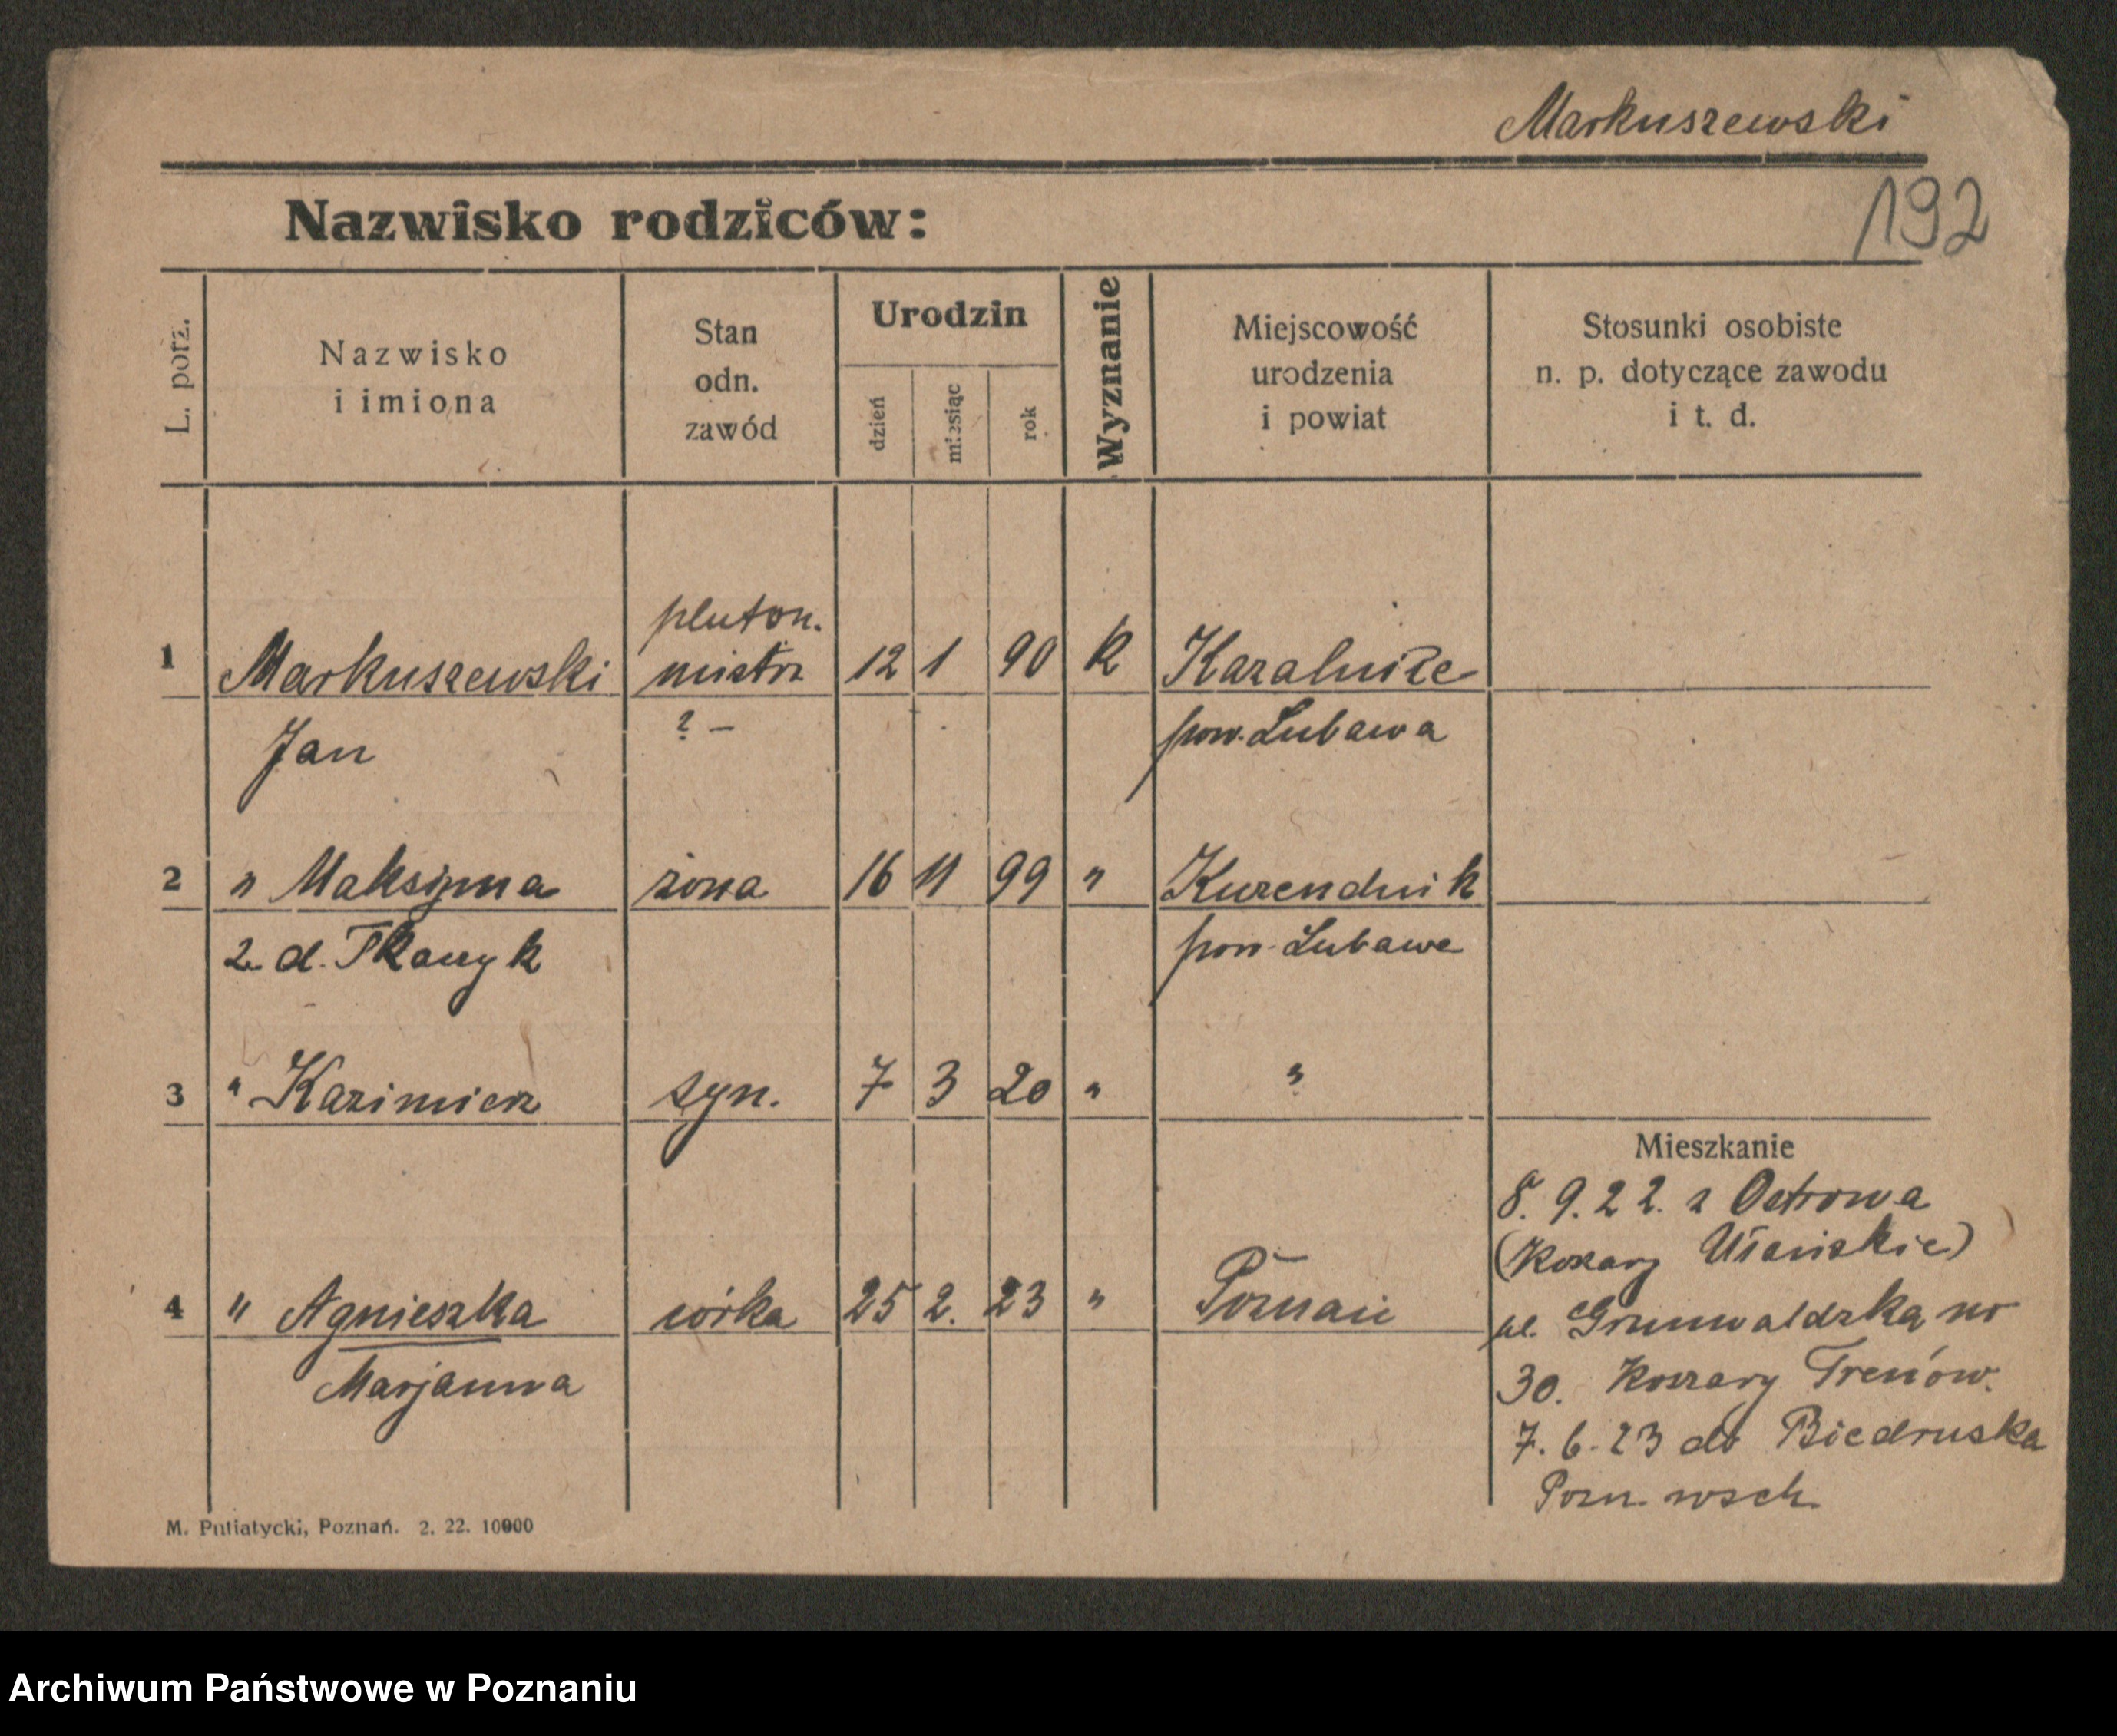 Markuszewski
192
Nazwisko rodziców:
L. porz.
Nazwisko
i imiona
Stan
odn.
zawód
Urodzin
dzień
miesiąc
rok
Wyznanie
Miejscowość
urodzenia
i powiat
Stosunki osobiste
n. p. dotyczące zawodu
i t. d.
1 Markuszewski pluton. 12 1 90 k
Jan ? - pow. Lubawa
2 " Maksyma żona 16 11 99 " Kurzendnik
z d. pow. Lubawa
3 " Kazimierz syn. 7 3 20 " "
4 " Agnieszka córka 25 2. 23 " Poznań
Marjanna
Mieszkanie
8. 9. 22. z Ostrowa
(Koszary Ułańskie)
ul. Grunwaldzka nr
30. Koszary Trenów.
7. 6. 23 do Biedruska
Pozn. wsch.
M. Putiatycki, Poznań. 2. 22. 10000
Archiwum Państwowe w Poznaniu